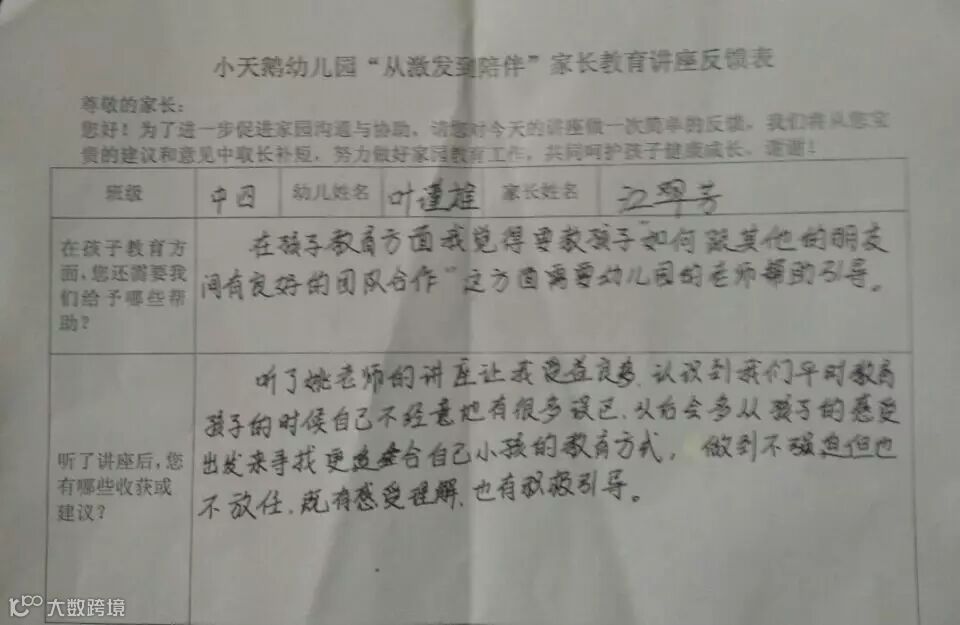 小天鹅幼儿园“从激发到陪伴”家长教育讲座反馈表
尊敬的家长：
您好！为了进一步促进家园沟通与协助，请您对今天的讲座做一次简单的反馈，我们将从您宝
贵的建议和意见中取长补短，努力做好家园教育工作，共同呵护孩子健康成长。谢谢！
班级 中四 幼儿姓名 叶瑾雄 家长姓名 江翠芳
在孩子教育方
面，您还需要我
们给予哪些帮
助？
在孩子教育方面我觉得要教孩子“如何跟其他的朋友
间有良好的团队合作”这方面需要幼儿园的老师帮助引导。
听了讲座后，您
有哪些收获或
建议？
听了姚老师的讲座让我受益良多，认识到我们平时教育
孩子的时候自己不经意地有很多误区，以后会多从孩子的感受
出发来寻找更适合自己小孩的教育方式，做到不强迫但也
不放任，既有感受理解，也有积极引导。
大数跨境